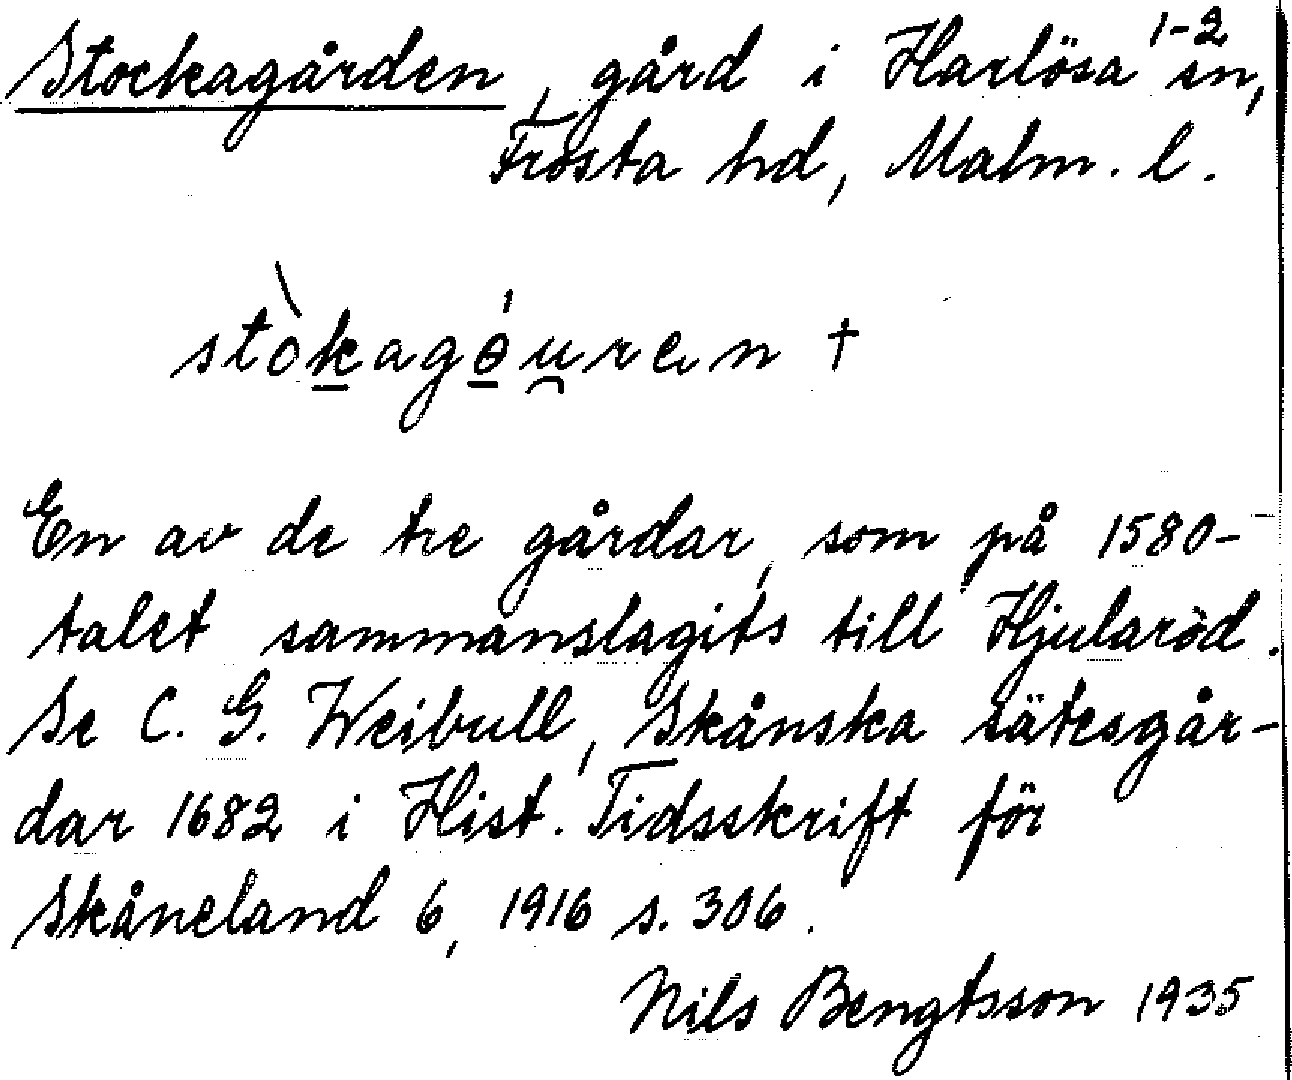 Stockagården, gård i Harlösa sn, 1-2
Frosta hd, Malm. l.
stòkagɵ́u̯ren †
En av de tre gårdar, som på 1580-
talet sammanslagits till Hjularöd.
Se C. G. Weibull, Skånska sätesgår-
dar 1682 i Hist. Tidsskrift för
Skåneland 6, 1916 s. 306.
Nils Bengtsson 1935